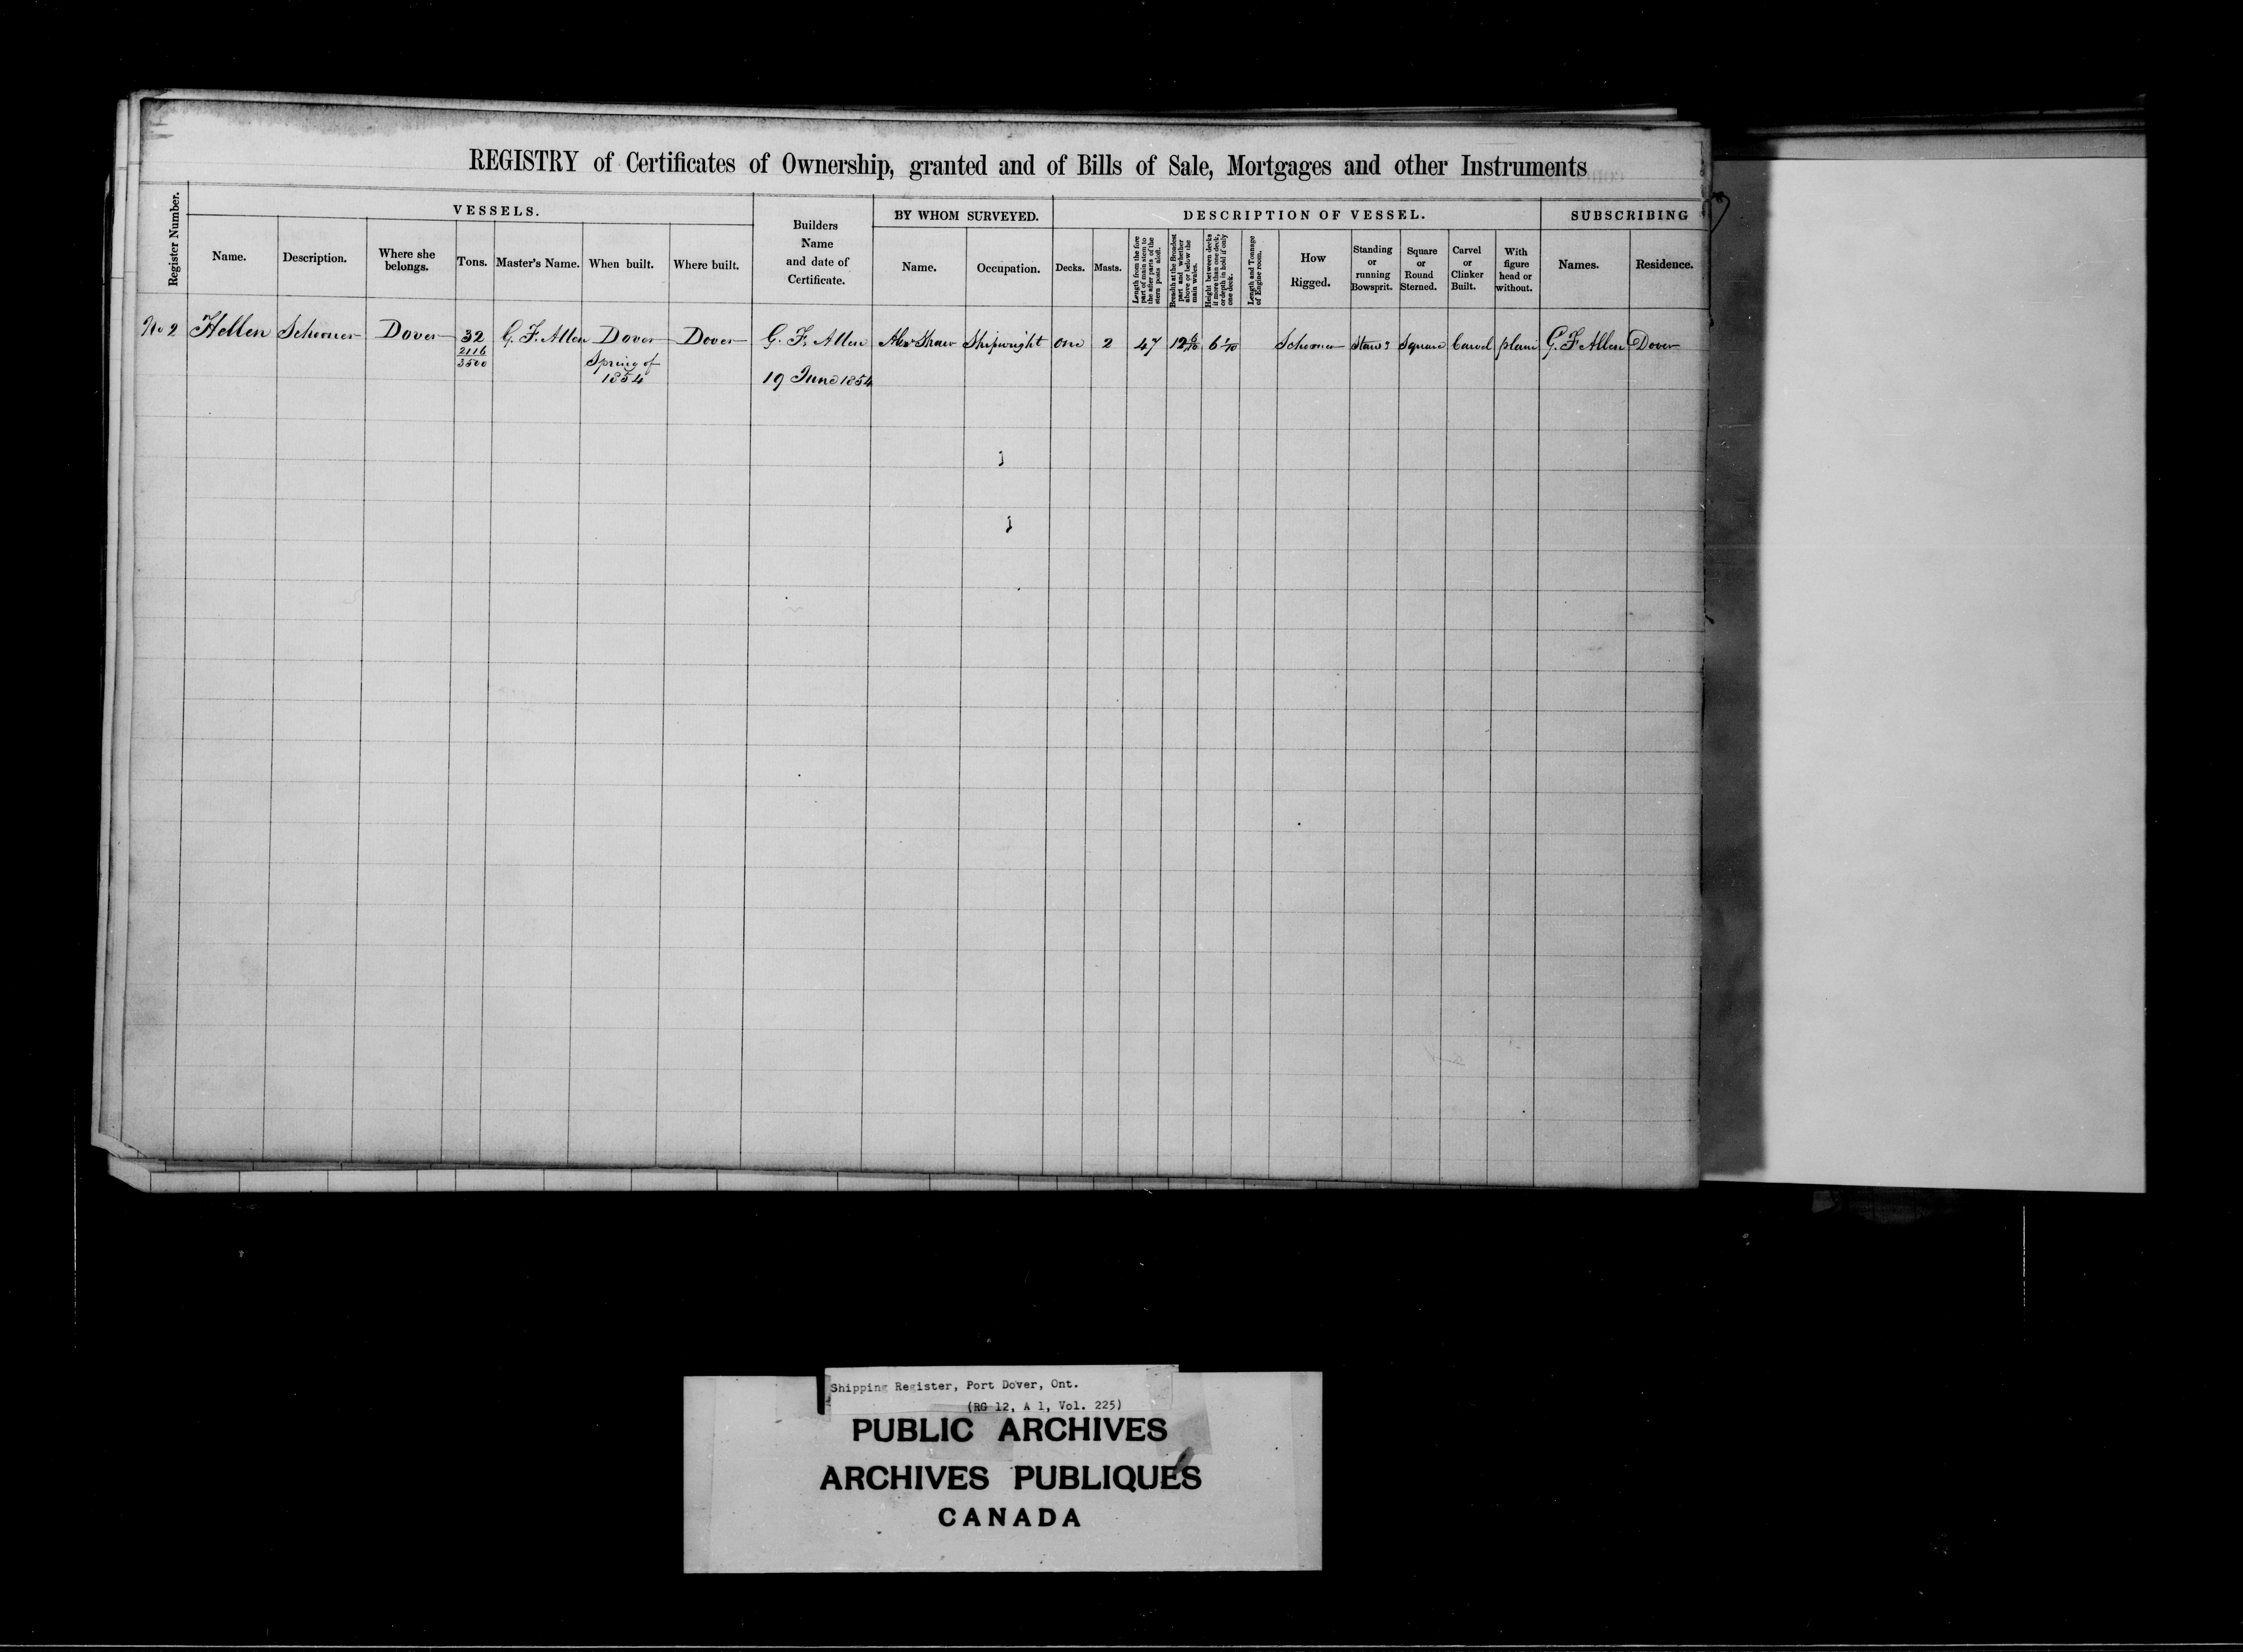 REGISTRY of Certificates of Ownership, granted and of Bills of Sale, Mortgages and other Instruments
Register Number.
VESSELS.
Name.
Description.
Where she
belongs.
Tons.
Master's Name.
When built.
Where built.
Builders
Name
and date of
Certificate.
BY WHOM SURVEYED.
Name.
Occupation.
DESCRIPTION OF VESSEL.
Decks.
Masts.
Length from the fore
part of main stem to
the after parts of the
stern posts aloft.
Breadth at the Broadest
part and whether
above or below the
main wales.
Height between decks
if more than one deck,
or depth in hold if only
one deck.
Length and Tonnage
of Engine room.
How
Rigged.
Standing
or
running
Bowsprit.
Square
or
Round
Sterned.
Carvel
or
Clinker
Built.
With
figure
head or
without.
SUBSCRIBING
Names.
Residence.
No 2 Hellen Schooner Dover 32 G. F. Allen Dover Dover G. F. Allen Alexr Shaw Shipwright One 2 47 12 6/10 6 1/10 Schooner Square Carvel plain G. F. Allen Dover
2116
3500
Spring of
1854
19 June 1854
Shipping Register, Port Dover, Ont.
(RG 12, A 1, Vol. 225)
PUBLIC ARCHIVES
ARCHIVES PUBLIQUES
CANADA